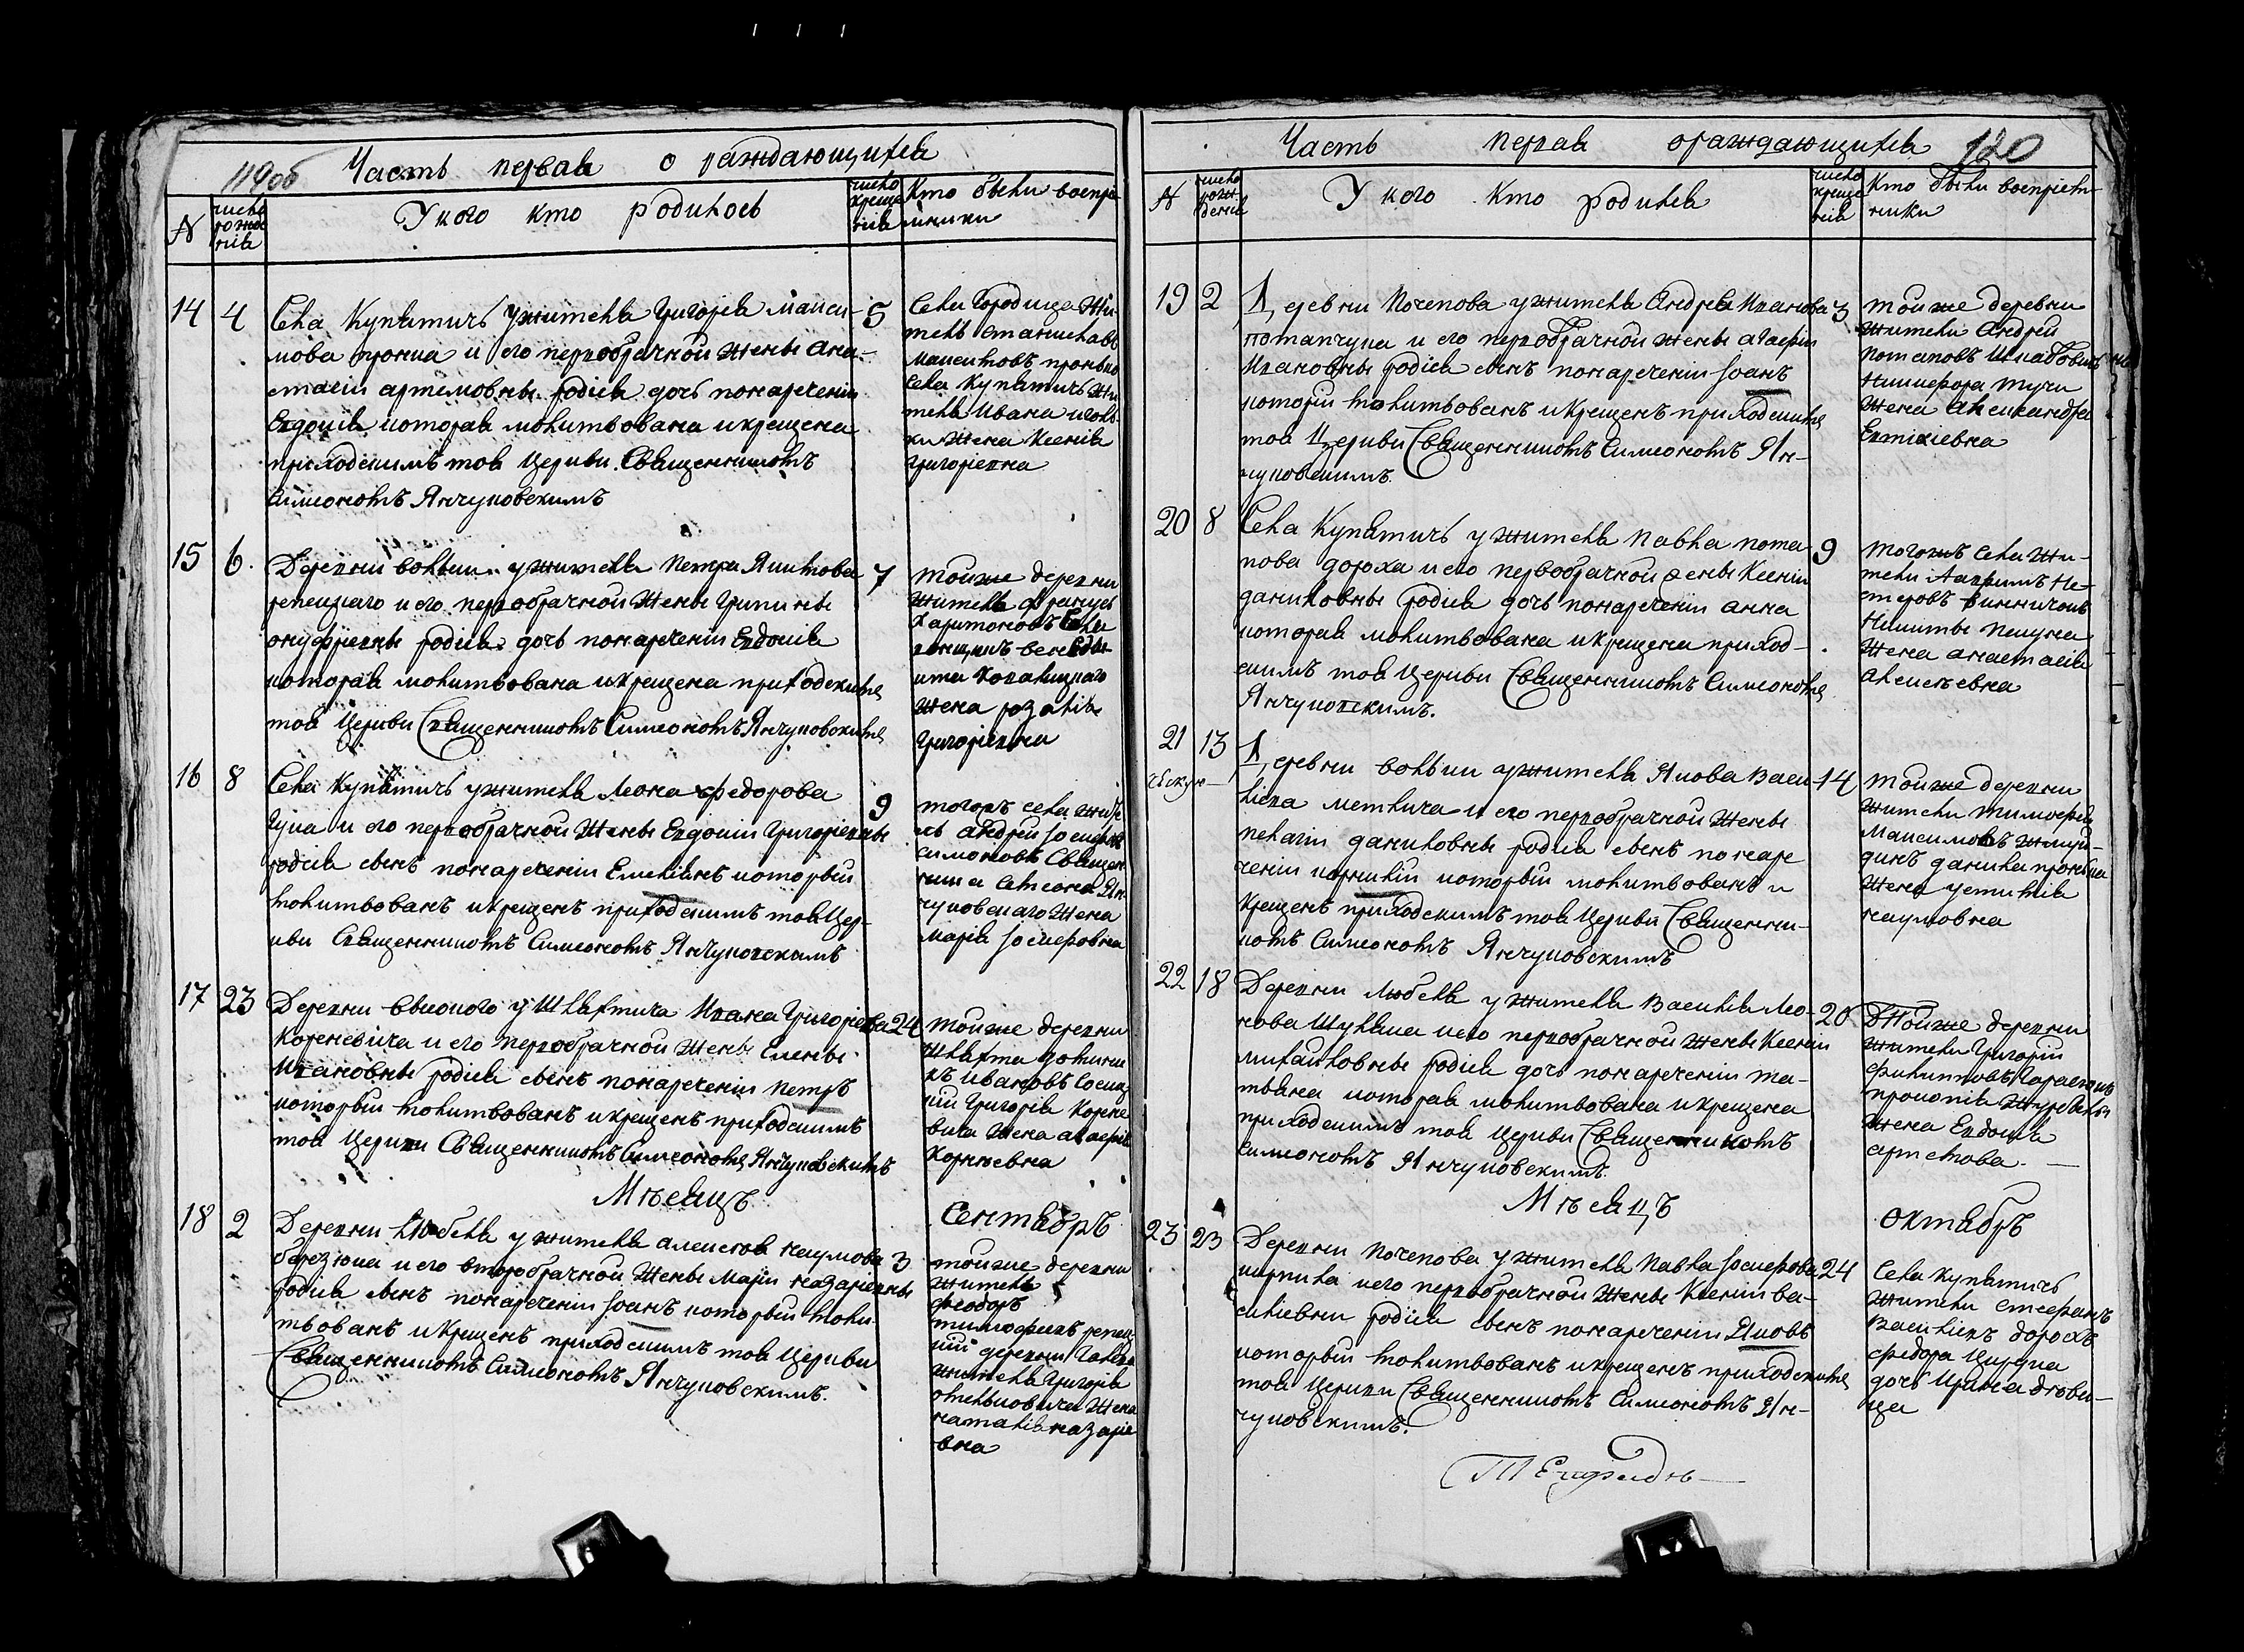 119об Часть первая о раждающихся
№
число рожде нія
У кого кто родилось
число креще нія
Кто были воспрі
мники
14 4
Села Купятичъ у жителя Григорія Макси-
мова пронка и его первобрачной жены Ана-
стасіи артемовны родися дочь понаречении
Евдокія которая молитвована и крещена
приходскимъ тоя Церкви Священникомъ
Симеономъ Янчуковскимъ
5
Села Городища Жи-
тель Станиславъ
Максимовъ пронько
Села Купятичъ Жи
теля Ивана
ки Жена Ксенія
Григоріевна
15 6
Деревни волки у жителя Петра Якимова
репецкаго и его первобрачной Жены Грипины
онуфріевны родися дочь понаречении Евдокія
которая молитвована и крещена приходскимъ
тоя Церкви Священникомъ Симеономъ Янчуковскимъ
7
тойже деревни
Житель
Харитоновъ
жена розалія
Григоріевна
16 8
Села Купятичъ у жителя Леона Федорова
Гука и его первобрачной Жены Евдокіи Григоріевны
родися сынъ понаречении Емиліянъ который
молитвованъ и крещенъ приходскимъ тоя Цер-
кви Священникомъ Симеономъ Янчуковскимъ
9
тогожъ села жите
ль андрей Іосифовъ
симоновъ Священ
ника Симеона Ян
чуковскаго Жена
Марія Іосифовна
17 23
Деревни Высокого у Шляхтича Ивана Григоріева
Кореневича и его первобрачной Жены Елены
Ивановны родися сынъ понаречении Петръ
который молитвованъ и крещенъ приходскимъ
тоя Церкви Священникомъ Симеономъ Янчуковскимъ
24
тойже деревни
Шляхта
къ Ивановъ
Григорія Корене
вича Жена агафія
Корнѣевна
Мѣсяцъ Сентябрь
18 2
Деревни Любеля у жителя алексея наумова
березюка и его второбрачной Жены Маріи назаріевны
родися сынъ понаречении Іоанъ который моли
твованъ и крещенъ приходскимъ тоя Церкви
Священникомъ Симеономъ Янчуковскимъ.
3
тойже деревни
житель
Феодоръ
тимофеевъ репец
кій деревни
жителя Григорія
Жена
наталія назаріе
вна
Часть первая о раждающихся 120
№
число рож денія
У кого кто родился
число креще нія
Кто были воспріем-
ники
19 2
Деревни Почепова у жителя Андрея Иванова
потапчука и его первобрачной жены агафіи
Ивановны родися сынъ понаречении Іоанъ
которій молитвованъ и крещенъ приходскимъ
тоя Церкви Священникомъ Симеономъ Ян-
чуковскимъ.
3
тойже деревни
жители Андрей
Потаповъ
Никифора
Жена Александра
Евтихіевна
20 8
Села Купятичъ у жителя Павла пота
пова дороха и его первобрачной жены Ксеніи
даниловны родися дочь понаречении анна
которая молитвована и крещена приход-
скимъ тоя Церкви Священникомъ Симеономъ
Янчуковскимъ.
9
тогожъ села жи-
тели
стеровъ винничокъ
Никиты
Жена анастасія
алексеевна
21 13
Деревни волки у жителя Якова Васи-
ліева метлича и его первобрачной Жены
пелагіи даниловны родися сынъ понаре
ченіи корнилій который молитвованъ и
крещенъ приходскимъ тоя Церкви Священни-
комъ Симеономъ Янчуковскимъ
14
тойже деревни
жители тимофей
Максимовъ
данила
Жена устинія
наумовна
22 18
Деревни Любеля у жителя Василія Лео-
нова Шуляка и его первобрачной жены Ксеніи
михайловны родися дочь понаречении та-
тьяна которая молитвована и крещена
приходскимъ тоя Церкви Священникомъ
Симеономъ Янчуковскимъ.
20
тойже деревни
жители Григорій
филиповъ
прокопія
Жена Евдокія
Мѣсяцъ октябрь
23 23
Деревни Почепова у жителя Павла Іосифова
кирпика и его первобрачной Жены Ксеніи ва-
силіевны родися сынъ понаречении Яковъ
который молитвованъ и крещенъ приходскимъ
тоя Церкви Священникомъ Симеономъ Ян-
чуковскимъ.
24
Села Купятичъ
жители Стефанъ
Васильевъ дорохъ
Федора
дочь Ирина дѣви-
ца